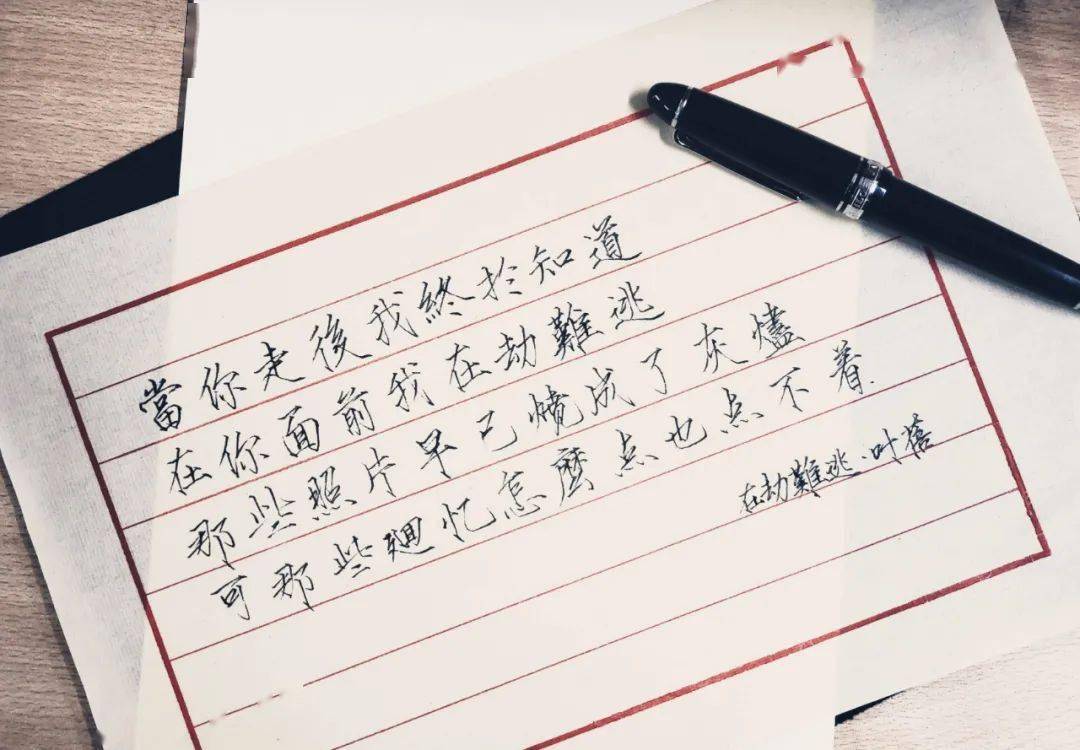 當你走後我終於知道
在你面前我在劫難逃
那些照片早已燒成了灰燼
可那些廻忆怎麼点也点不着
在劫難逃·叶蓓